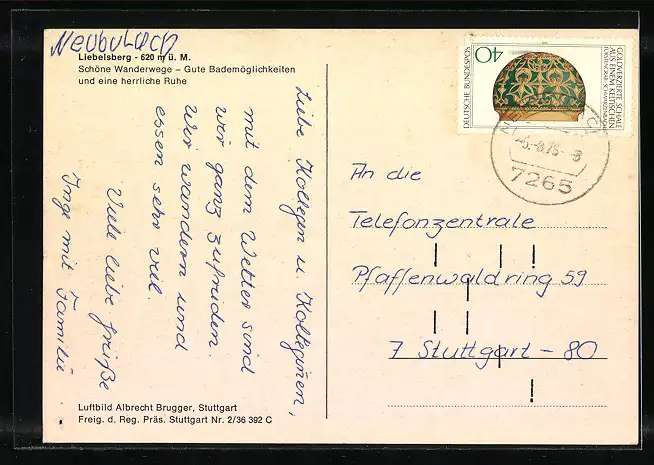 Neubulach
Liebelsberg - 620 m ü. M.
Schöne Wanderwege – Gute Bademöglichkeiten
und eine herrliche Ruhe
Liebe Kollegen u. Kolleginnen,
mit dem Wetter sind
wir ganz zufrieden.
Wir wandern und
essen sehr viel.
Viele liebe Grüße
Inge mit Familie
Luftbild Albrecht Brugger, Stuttgart
Freig. d. Reg. Präs. Stuttgart Nr. 2/36 392 C
DEUTSCHE BUNDESPOST
40
GOLDVERZIERTE SCHALE
AUS EINEM KELTISCHEN
7265
An die
Telefonzentrale
Pfaffenwaldring 59
7 Stuttgart - 80